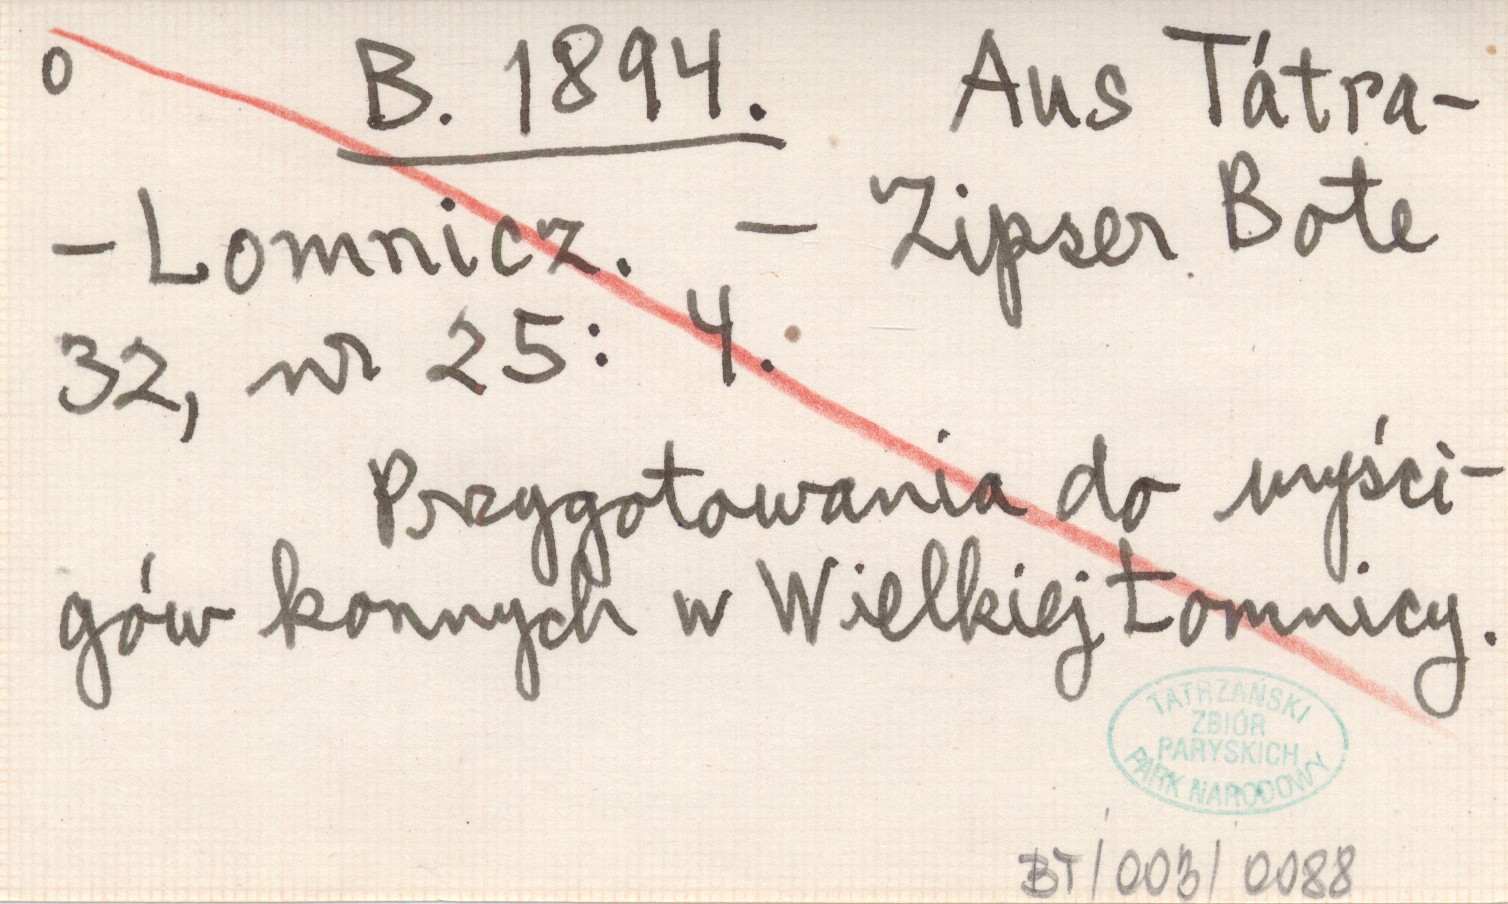 o B. 1894. Aus Tátra-
-Lomnicz. — Zipser Bote
32, nr 25: 4.
Przygotowania do wyści-
gów konnych w Wielkiej Łomnicy.
TATRZAŃSKI
ZBIÓR
PARYSKICH
PARK NARODOWY
BT/003/0088